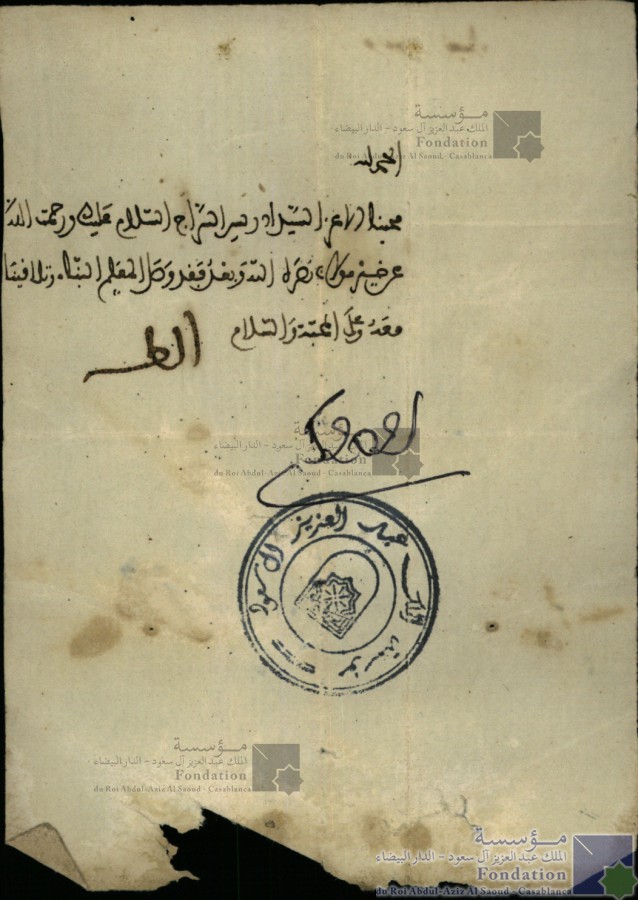 مؤسسة
الملك عبد العزيز آل سعود - الدار البيضاء
Fondation
du Roi Abdul-Aziz Al Saoud - Casablanca
الحمد لله
محبنا الاعز السيد ادريس السراج السلام عليك ورحمت الله
عن خير مولانا نصره الله وبعد فقد وصل المعلم البناء وتلاقينا
معه وعلى المحبة والسلام
مؤسسة
الملك عبد العزيز آل سعود - الدار البيضاء
Fondation
du Roi Abdul-Aziz Al Saoud - Casablanca
مؤسسة الملك عبد العزيز آل سعود
مؤسسة
الملك عبد العزيز آل سعود - الدار البيضاء
Fondation
du Roi Abdul-Aziz Al Saoud - Casablanca
مؤسسة
الملك عبد العزيز آل سعود - الدار البيضاء
Fondation
du Roi Abdul-Aziz Al Saoud - Casablanca